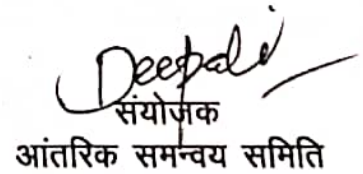 Deepali
संयोजक
आंतरिक समन्वय समिति